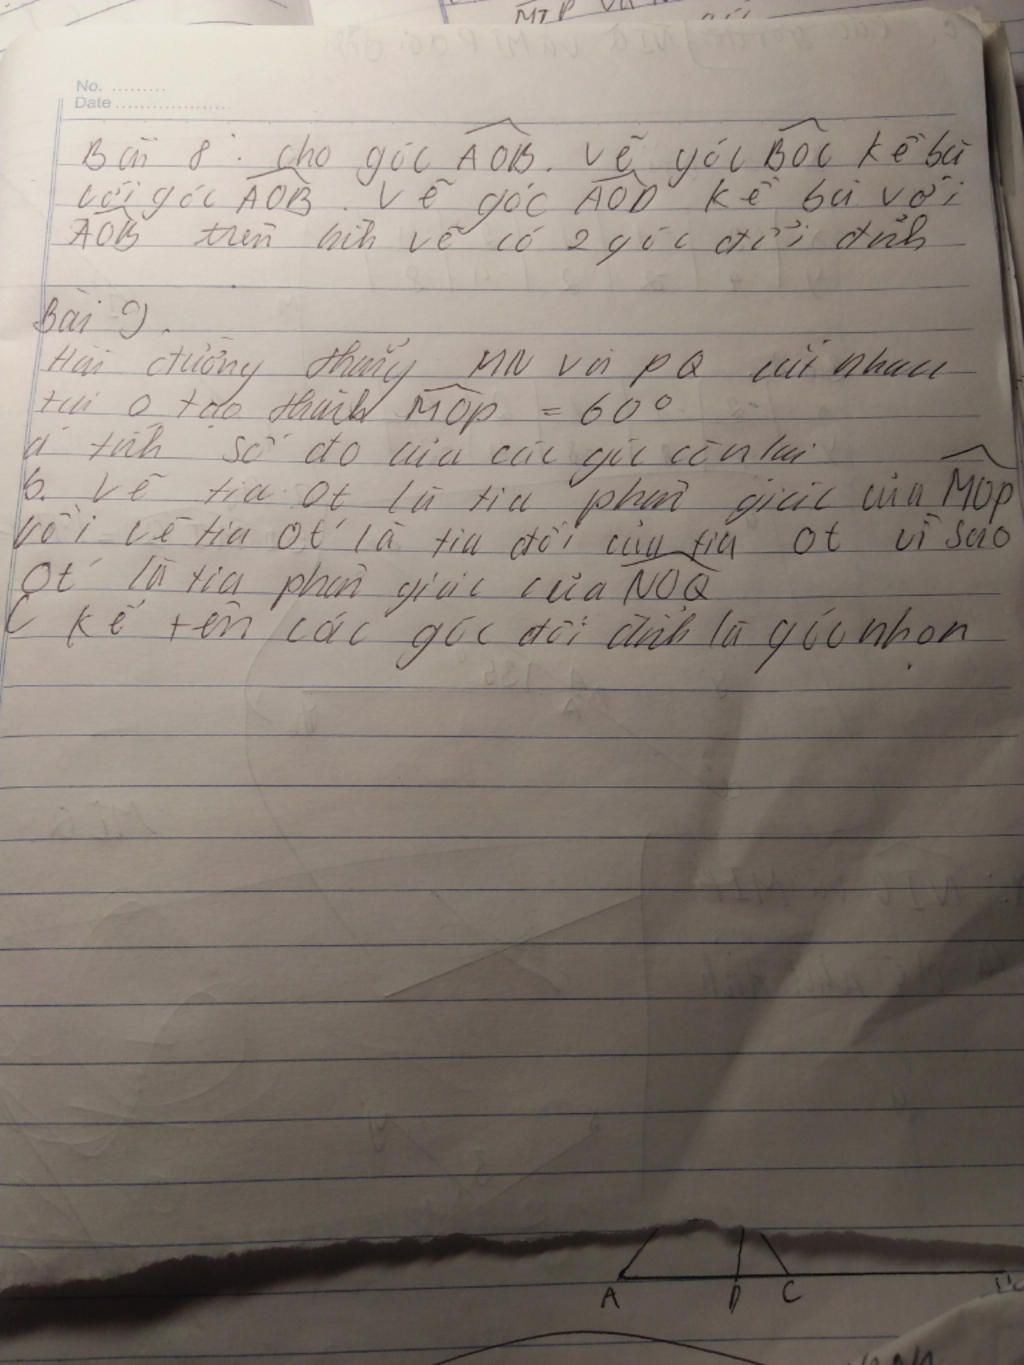 No. .........
Date ...................
Bài 8. cho góc AOB. Vẽ góc BOC kề bù
với góc AOB. Vẽ góc AOD kề bù với
AOB trên hình vẽ có 2 góc đối đỉnh
Bài 9)
Hai đường thẳng MN và PQ cắt nhau
tại O tạo thành MOP = 60°
a tính số đo của các góc còn lại
b. Vẽ tia Ot là tia phân giác của MOP
rồi vẽ tia Ot' là tia đối của tia Ot vì sao
Ot' là tia phân giác của NOQ
C kể tên các góc đối đỉnh là góc nhọn
A D C